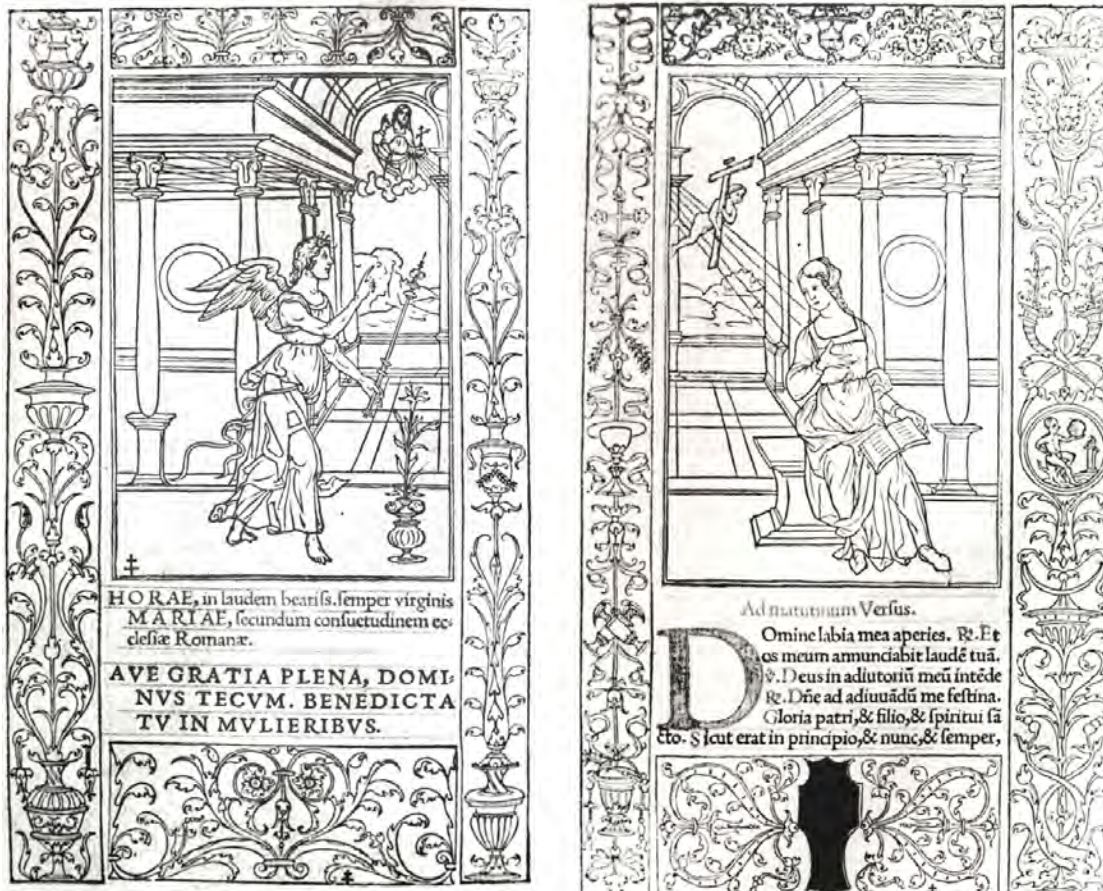 HORAE, in laudem beatiſſ. ſemper virginis
MARIAE, ſecundum conſuetudinem ec-
cleſiæ Romanæ.
AVE GRATIA PLENA, DOMI-
NVS TECVM. BENEDICTA
TV IN MVLIERIBVS.
Ad matutinum Verſus.
Domine labia mea aperies. ℟. Et
os meum annunciabit laudē tuā.
℣. Deus in adiutoriū meū intēde
℟. Dñe ad adiuuādū me feſtina.
Gloria patri, & filio, & ſpiritui ſā
cto. Sicut erat in principio, & nunc, & ſemper,